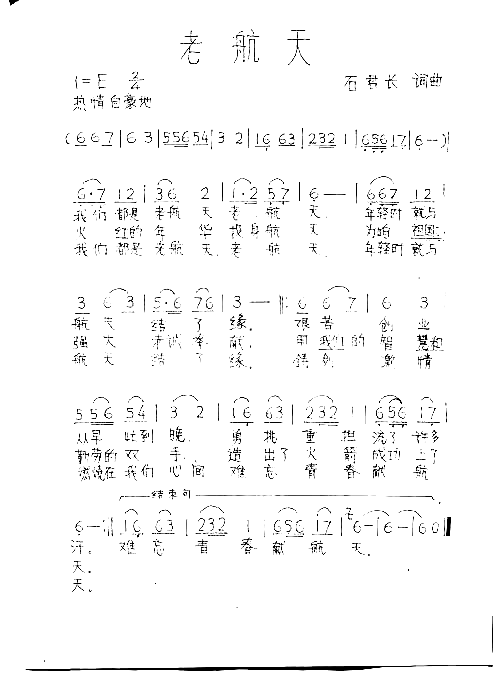 老航天
1=E 2/4 石君长 词曲
热情自豪地
(667|63|556 54|32|16 63|232 1|656 17|6-)|
6·7 12|36 2|1·2 57|6--|667 12|
我们都是老航天老航天.年轻时就与
火红的年华投身航天为咱祖国
我们都是老航天.老航天年轻时就与
3 63|5·6 76|3--‖:6 67|6 3|
航天结了缘.艰苦创业
强大来献.用我们的智慧和
航天结了缘.激情
556 54|32|16 63|232 1|656 17|
从早忙到晚勇挑重担流了许多
勤劳的双手.造出了火箭成功上了
燃烧在我们心间难忘青春献航
结束句
6--:‖16 63|232 1|656 17|6-|6-|60‖
汗.难忘青春献航天.
天.
天.